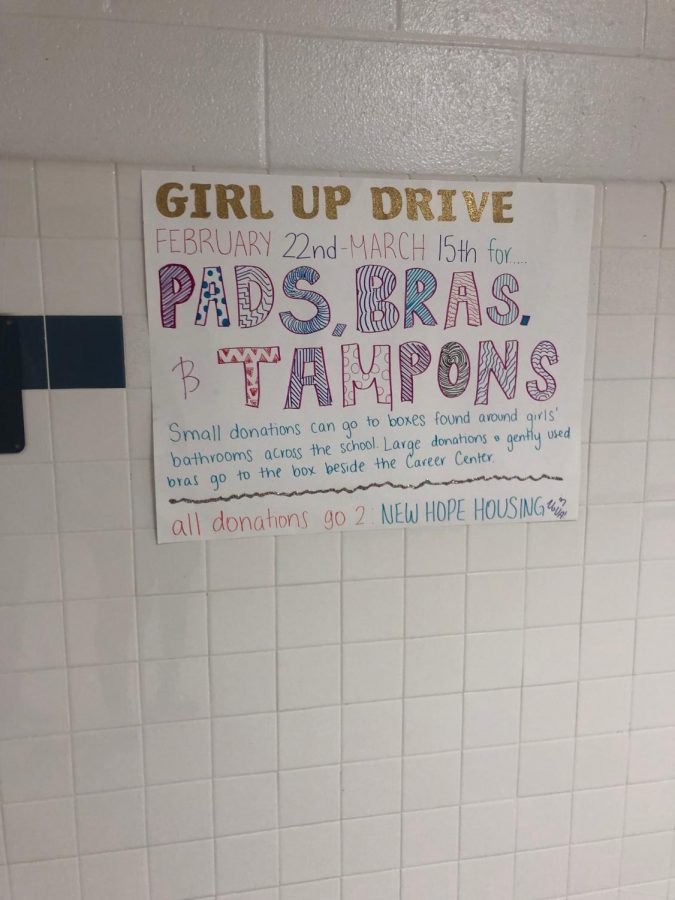 GIRL UP DRIVE
FEBRUARY 22nd-MARCH 15th for....
PADS, BRAS,
& TAMPONS
Small donations can go to boxes found around girls'
bathrooms across the school. Large donations & gently used
bras go to the box beside the Career Center.
all donations go 2: NEW HOPE HOUSING